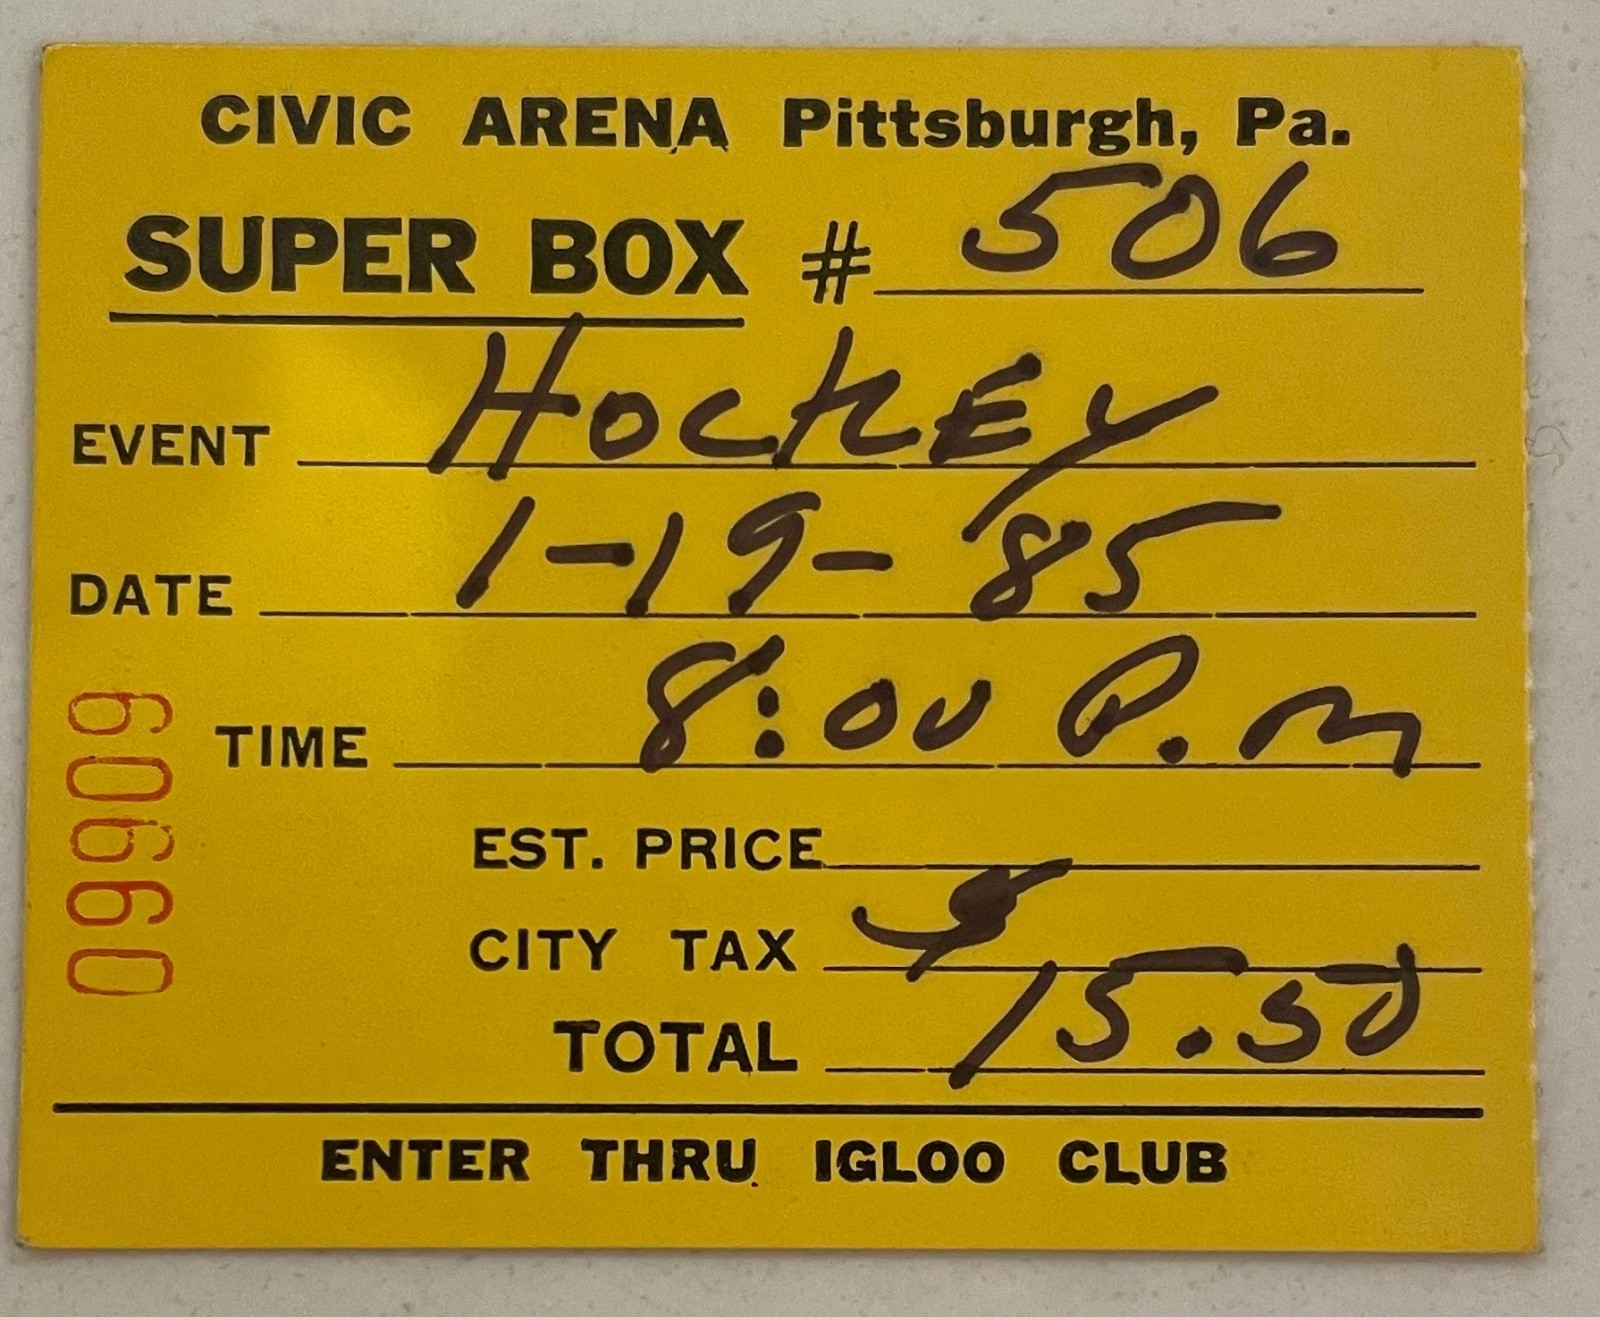 CIVIC ARENA Pittsburgh, Pa.
SUPER BOX # 506
EVENT HOCKEY
DATE 1-19-85
TIME 8:00 P.M
EST. PRICE
CITY TAX
TOTAL $15.50
ENTER THRU IGLOO CLUB
09909